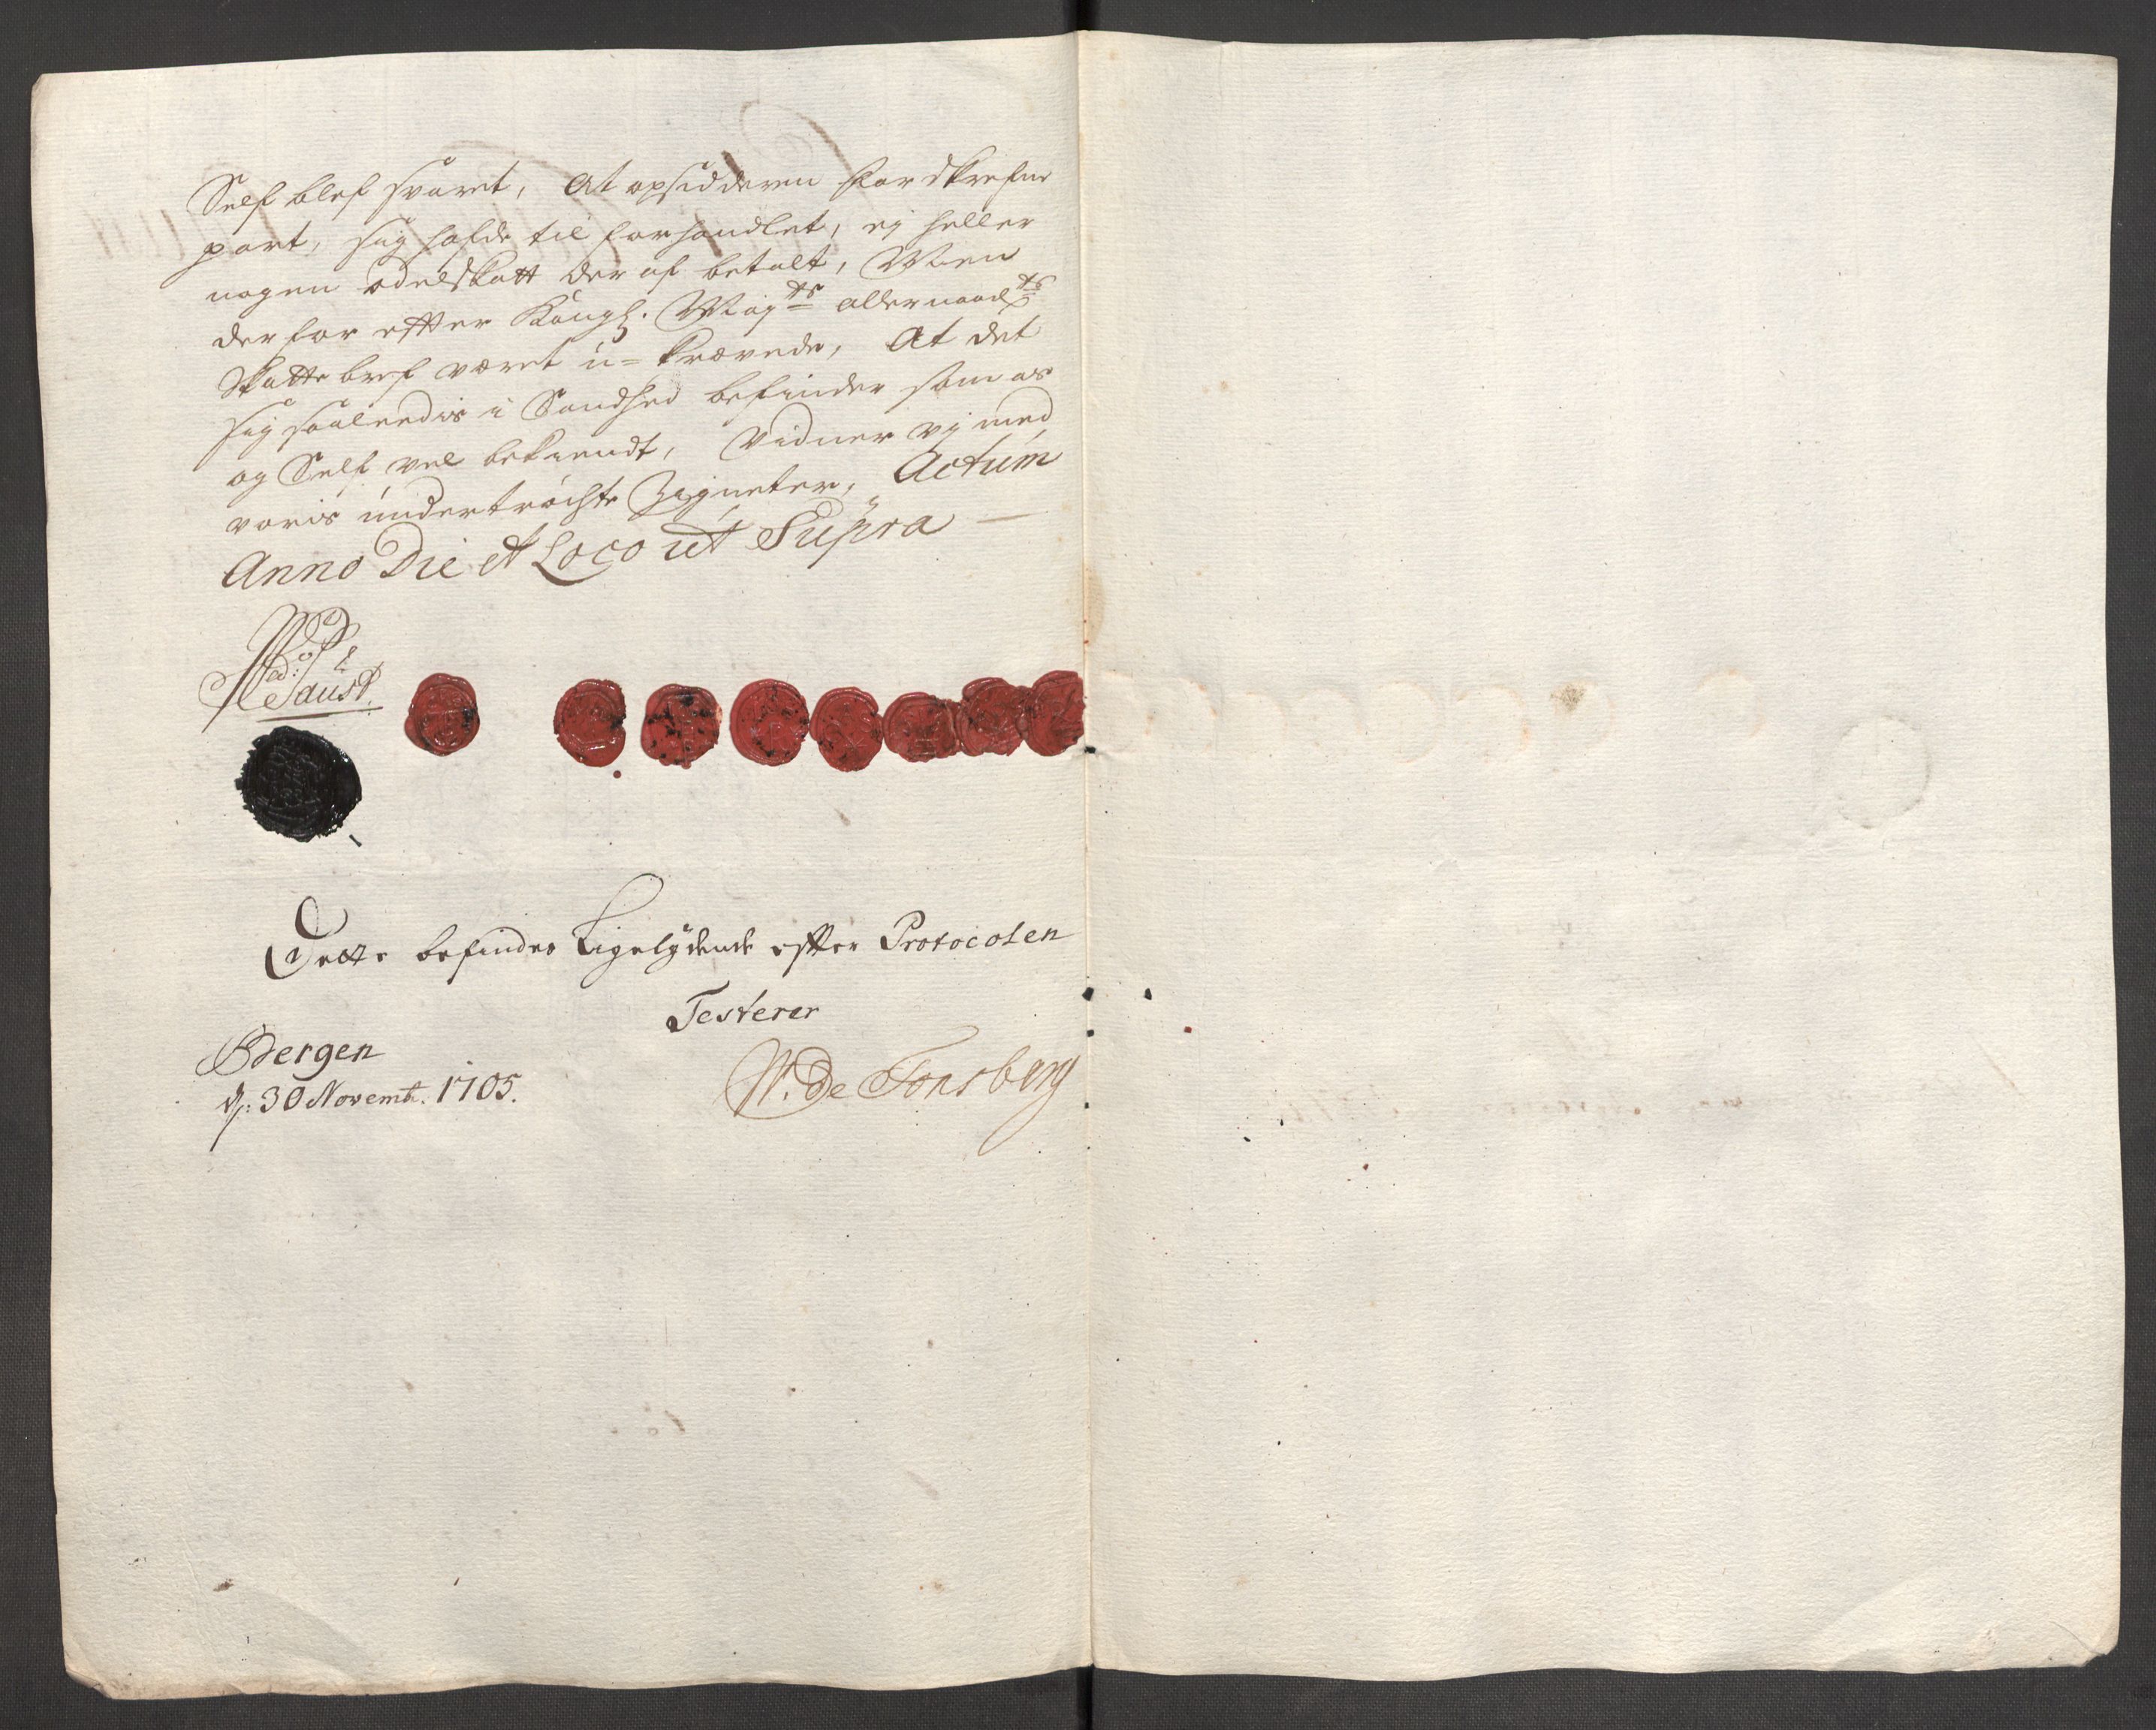 Self blef svaret, At opsidderen fordskrefne
part, sig hafde til forhandlet, ej heller
nogen odelskatt der af betalt, Men
derfor efter Kongl. May:ts allernaad:ts
Skatte bref været u-krævede, At det
sig saaleedis i Sandhed befinder som os
og Self vel bekiendt, Vidner vj med
voris undertröchte Zigneter, Actum
Anno Die et Loco ut Supra
Faust
Dette befindes Ligelydende efter Protocolen
Testerer
Bergen
d: 30 Novemb. 1705.
W. De Tonsberg